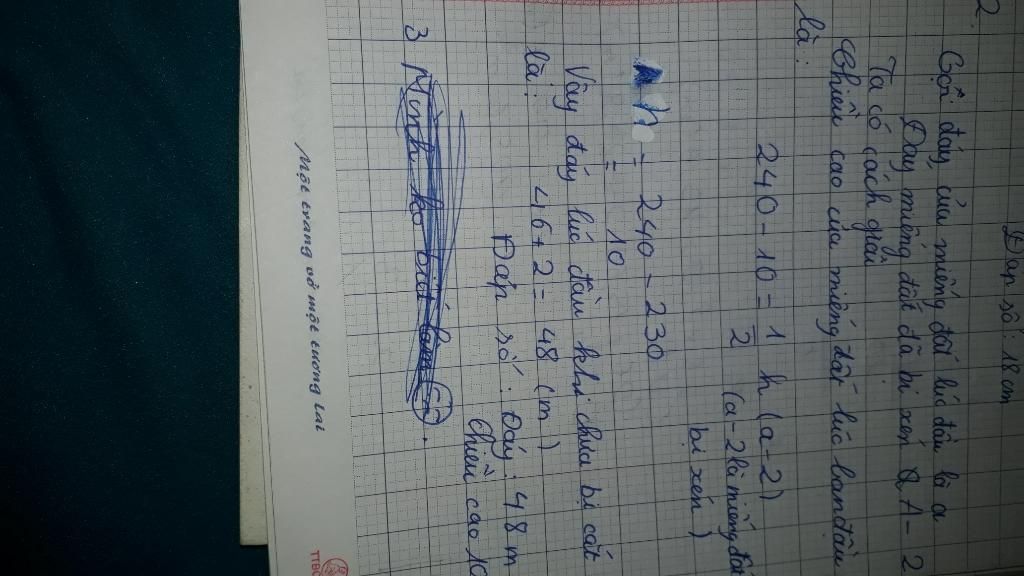 Đáp số: 18 cm
2. Gọi đáy của miếng đất lúc đầu là a
Đáy miếng đất đã bị xén là A - 2
Ta có cách giải
Chiều cao của miếng đất lúc ban đầu
là:
240 - 10 = 1/2 h (a - 2)
(a - 2 là miếng đất
bị xén)
h = 240 - 230
= 10
Vậy đáy lúc đầu khi chưa bị cắt
là:
46 + 2 = 48 (m)
Đáp số: Đáy: 48 m
Chiều cao 10
3 Mình ko biết làm
Một trang vở một tương lai